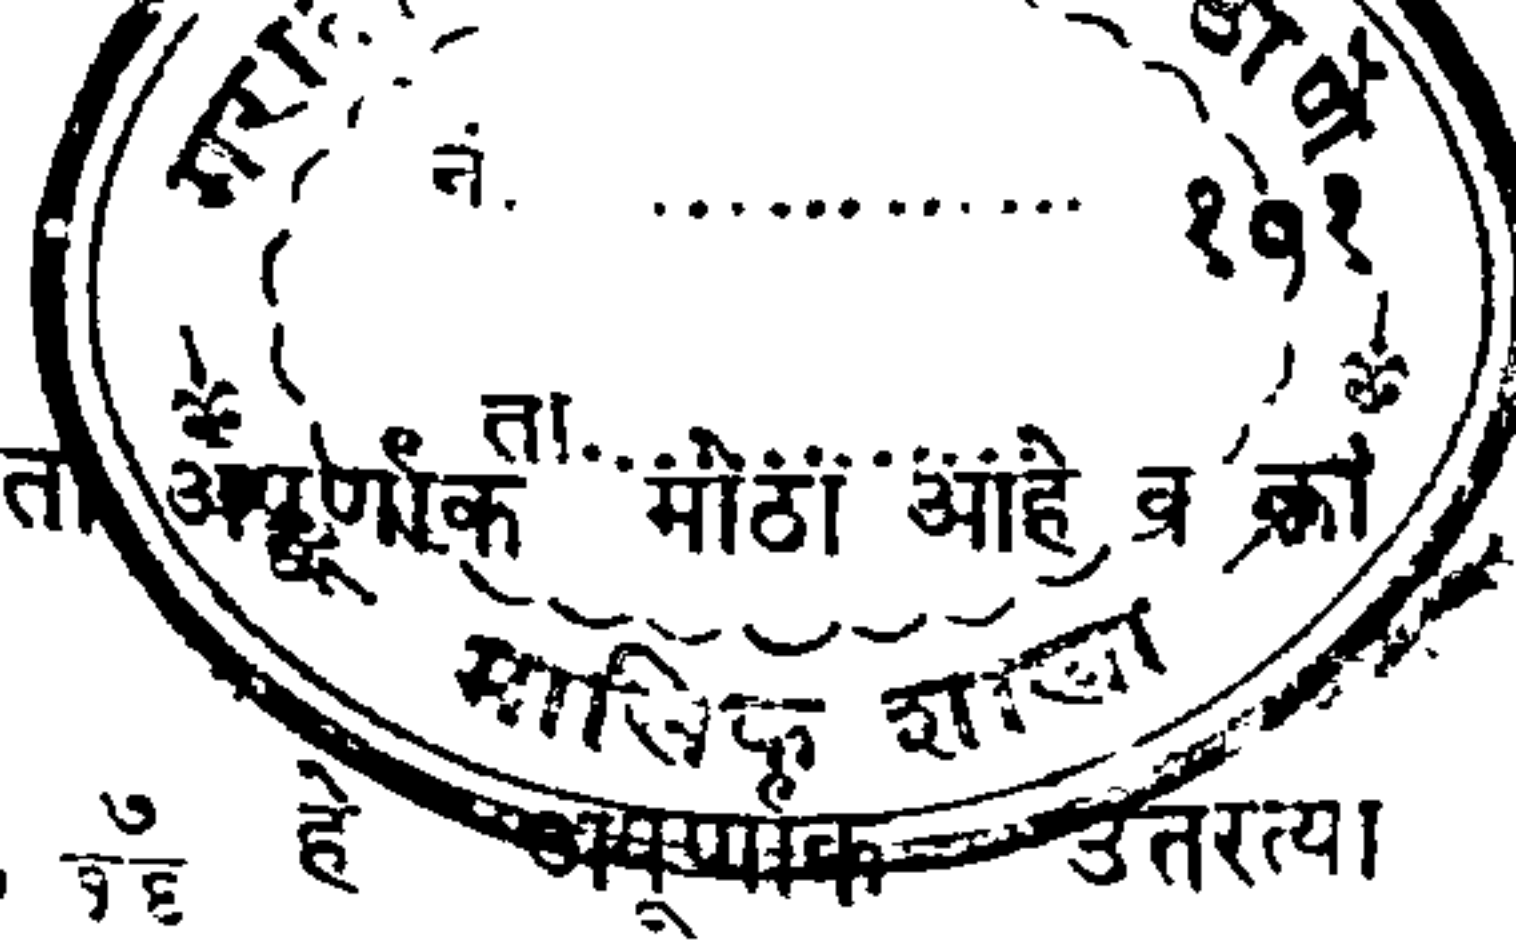 नं. ............ १९१
ता............
ता अपूर्णांक मोठा आहे व
मासिक शाखा
७
१६ हे अपूर्णांक उतरत्या